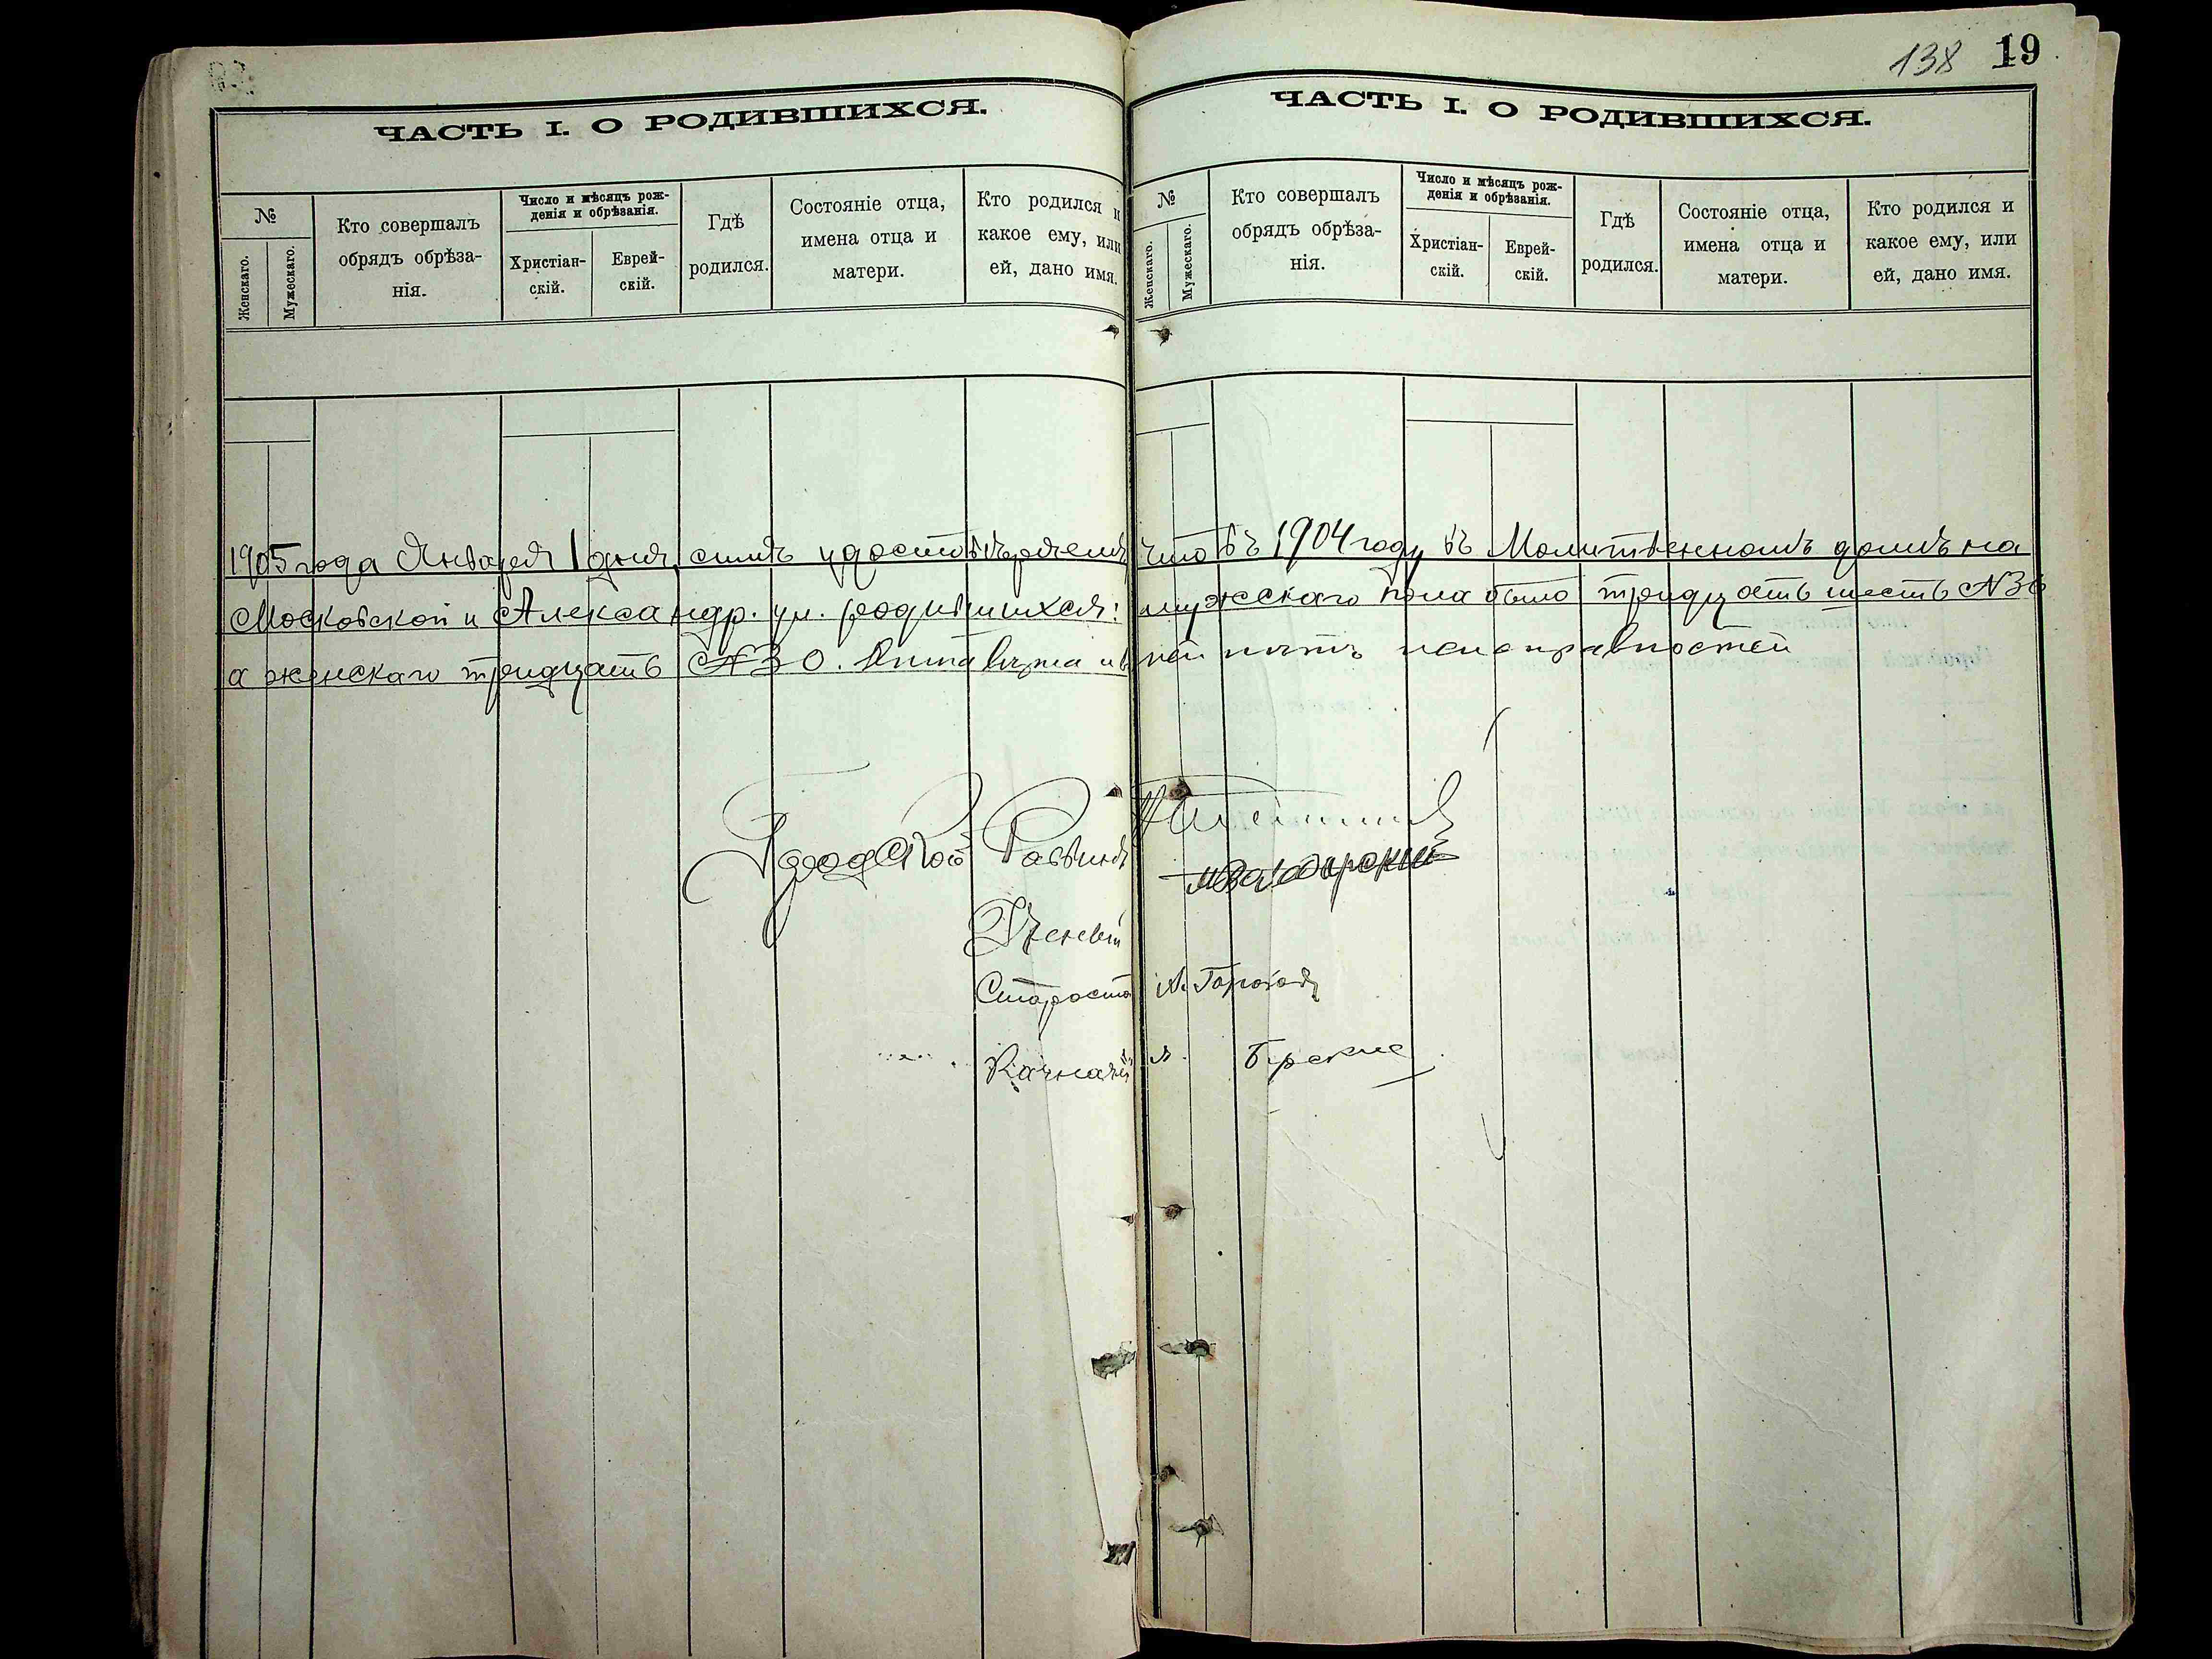 138 19
ЧАСТЬ I. О РОДИВШИХСЯ.
№
Женскаго.
Мужескаго.
Кто совершалъ
обрядъ обрѣза-
нія.
Число и мѣсяцъ рож-
денія и обрѣзанія.
Христіан-
скій.
Еврей-
скій.
Гдѣ
родился.
Состояніе отца,
имена отца и
матери.
Кто родился и
какое ему, или
ей, дано имя.
ЧАСТЬ I. О РОДИВШИХСЯ.
№
Женскаго.
Мужескаго.
Кто совершалъ
обрядъ обрѣза-
нія.
Число и мѣсяцъ рож-
денія и обрѣзанія.
Христіан-
скій.
Еврей-
скій.
Гдѣ
родился.
Состояніе отца,
имена отца и
матери.
Кто родился и
какое ему, или
ей, дано имя.
1905 года Января 1 дня, симъ удостовѣряемъ что въ 1904 году въ Молитвенномъ домѣ на
Московской и Александр. ул. родившихся: мужескаго пола было тридцать шесть №36
а женскаго тридцать №30. вѣрна и въ ней нѣтъ неисправностей
Городской Раввинъ
Ученый
Староста А.
Казначей